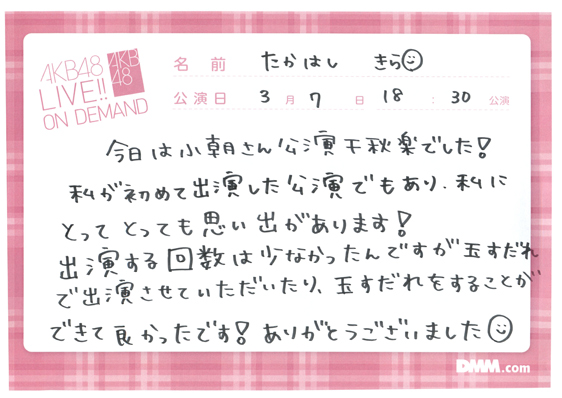 AKB48
LIVE!!
ON DEMAND
AKB
48
名前 たかはし きら
公演日 3月7日 18:30公演
今日は小朝さん公演千秋楽でした!
私が初めて出演した公演でもあり、私に
とってとっても思い出があります!
出演する回数は少なかったんですが玉すだれ
で出演させていただいたり、玉すだれをすることが
できて良かったです!ありがとうございました
DMM.com